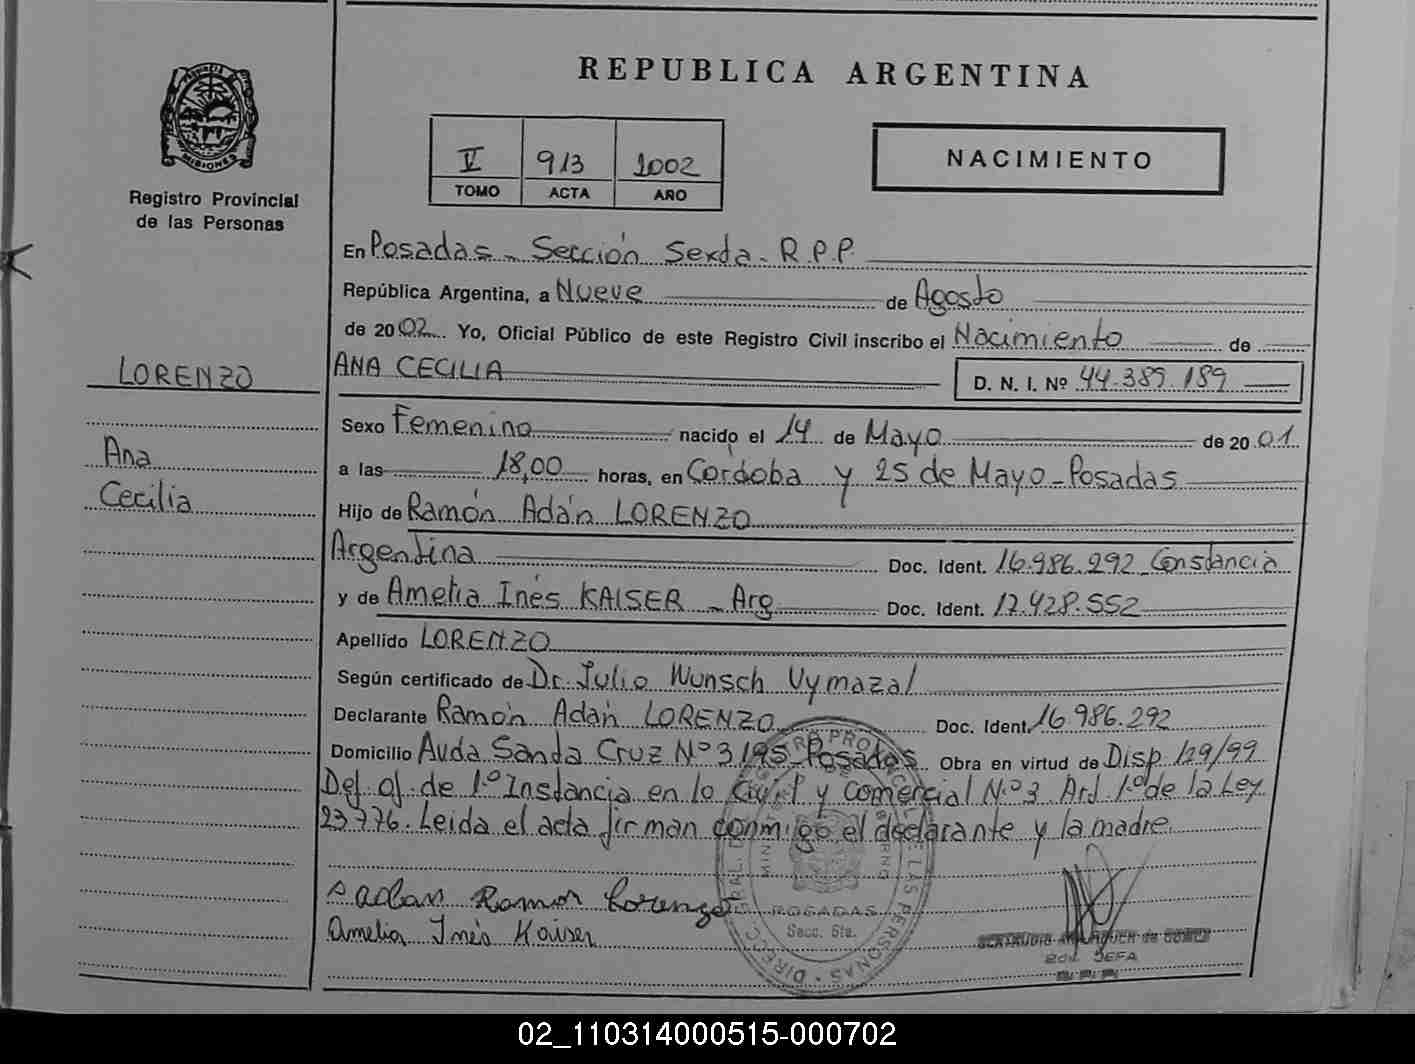 REPUBLICA ARGENTINA
PROVINCIA DE MISIONES
Registro Provincial
de las Personas
V 913 2002
TOMO ACTA AÑO
NACIMIENTO
En Posadas - Sección Sexta - R.P.P.
República Argentina, a Nueve de Agosto
de 2002 Yo, Oficial Público de este Registro Civil inscribo el Nacimiento de
LORENZO
Ana
Cecilia
ANA CECILIA D. N. I. Nº 44.389.189
Sexo Femenino nacido el 14 de Mayo de 2001
a las 18,00 horas, en Córdoba y 25 de Mayo - Posadas
Hijo de Ramón Adán LORENZO
Argentina Doc. Ident. 16.986.292 Constancia
y de Amelia Inés KAISER - Arg Doc. Ident. 17.428.552
Apellido LORENZO
Según certificado de Dr. Julio Wunsch Vymazal
Declarante Ramón Adán LORENZO Doc. Ident. 16.986.292
Domicilio Avda Santa Cruz Nº 3195 - Posadas Obra en virtud de Disp 129/99
Def of. de 1º Instancia en lo Civil y Comercial N.º 3 Art 1.º de la Ley
23.776. Leida el acta firman conmigo el declarante y la madre.
Adan Ramon Lorenzo
Amelia Inés Kaiser
POSADAS
Secc. 6ta.
JEFA
R.P.P.
02_110314000515-000702